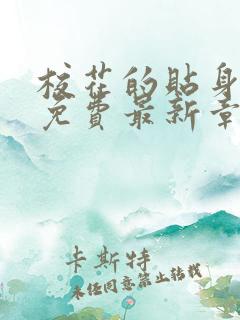 校花的貼身
免費最新章
卡斯特
未經同意禁止轉載